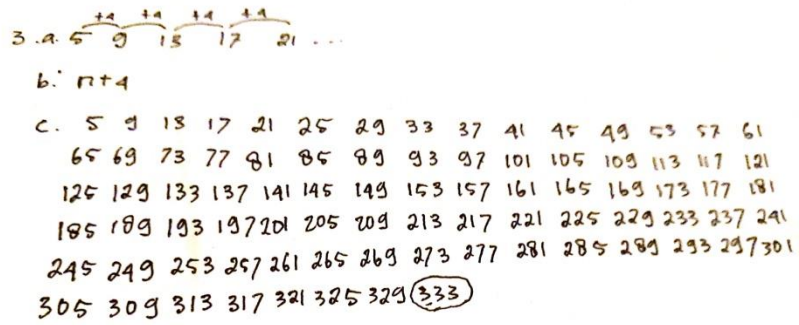 +4 +4 +4 +4
3.a. 5 9 13 17 21 ...
b. n+4
c. 5 9 13 17 21 25 29 33 37 41 45 49 53 57 61
65 69 73 77 81 85 89 93 97 101 105 109 113 117 121
125 129 133 137 141 145 149 153 157 161 165 169 173 177 181
185 189 193 197 201 205 209 213 217 221 225 229 233 237 241
245 249 253 257 261 265 269 273 277 281 285 289 293 297 301
305 309 313 317 321 325 329 333